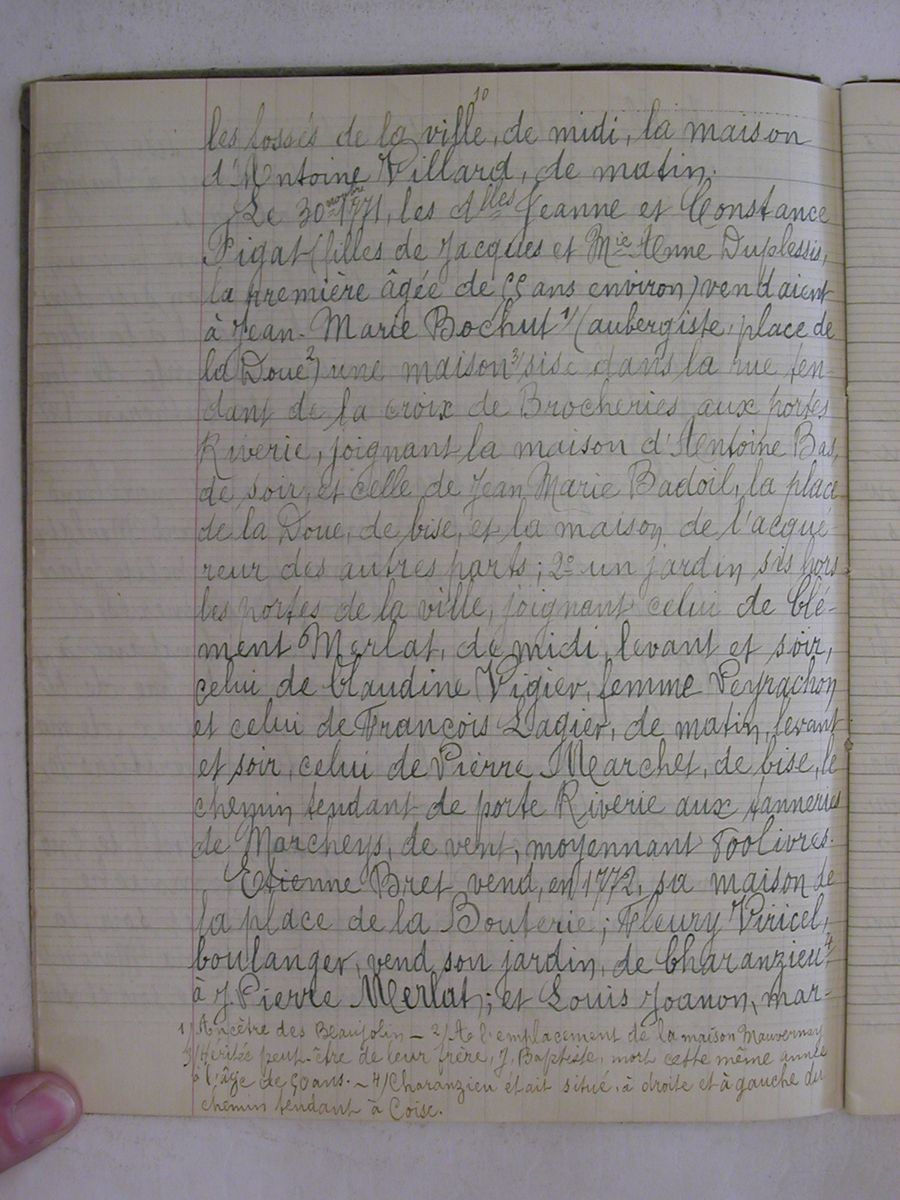 10
les fossés de la ville, de midi, la maison
d'Antoine Villard, de matin.
Le 30 novembre 1771, les dlles Jeanne et Constance
Pigat (filles de Jacques et Mie Anne Duplessis,
la première âgée de 55 ans environ) vendaient
à Jean-Marie Bochut 1/ (aubergiste, place de
la Doue 2) une maison 3/ sise dans la rue ten-
dant de la croix de Brocheries aux portes
Riverie, joignant la maison d'Antoine Bas,
de soir, et celle de Jean Marie Badoil, la place
de la Doue, de bise, et la maison de l'acqué-
reur des autres parts; 2º un jardin sis hors
les portes de la ville, joignant celui de Clé-
ment Merlat, de midi, levant et soir,
celui de Claudine Vigier, femme Peyrachon
et celui de François Lagier, de matin, levant
et soir, celui de Pierre Marchet, de bise, le
chemin tendant de porte Riverie aux tanneries
de Marcheys, de vent, moyennant 800 livres.
Etienne Bret vend, en 1772, sa maison de
la place de la Bouterie; Fleury Viricel,
boulanger, vend son jardin, de Charanzieu 4
à J. Pierre Merlat; et Louis Joanon, mar-
1/ Ancêtre des Beaujolin – 2/ A l'emplacement de la maison Mauvernay
3/ Héritée peut-être de leur frère, J. Baptiste, mort cette même année
à l'âge de 50 ans. – 4/ Charanzieu était situé, à droite et à gauche du
chemin tendant à Coise.